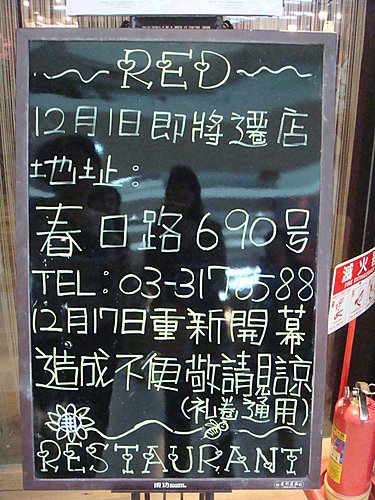 RED
12月1日即將遷店
地址：
春日路690號
TEL：03-3170588
12月17日重新開幕
造成不便敬請見諒
(礼卷通用)
RESTAURANT
滅火器